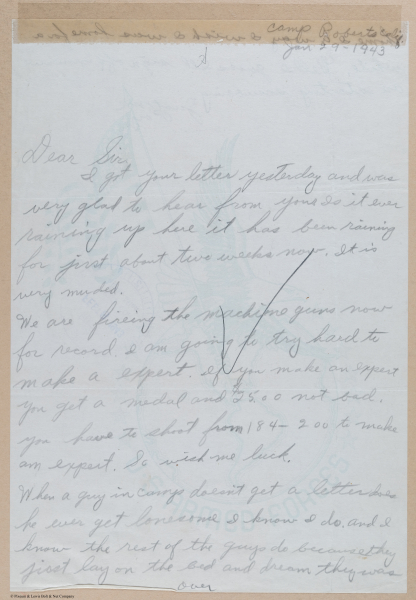 Camp Roberts Calif
Jan 29-1943
Dear Sir,
I got your letter yesterday and was
very glad to hear from you. Is it ever
raining up here it has been raining
for jist about two weeks now. It is
very mudded.
We are fireing the machine guns now
for record. I am going to try hard to
make a expert. If you make an expert
you get a medal and $5.00 not bad.
you have to shoot from 184-200 to make
am expert. So wish me luck.
When a guy in camp doesn't get a letter does
he ever get lonesome I know I do. and I
know the rest of the guys do because they
jist lay on the bed and dream they was
over